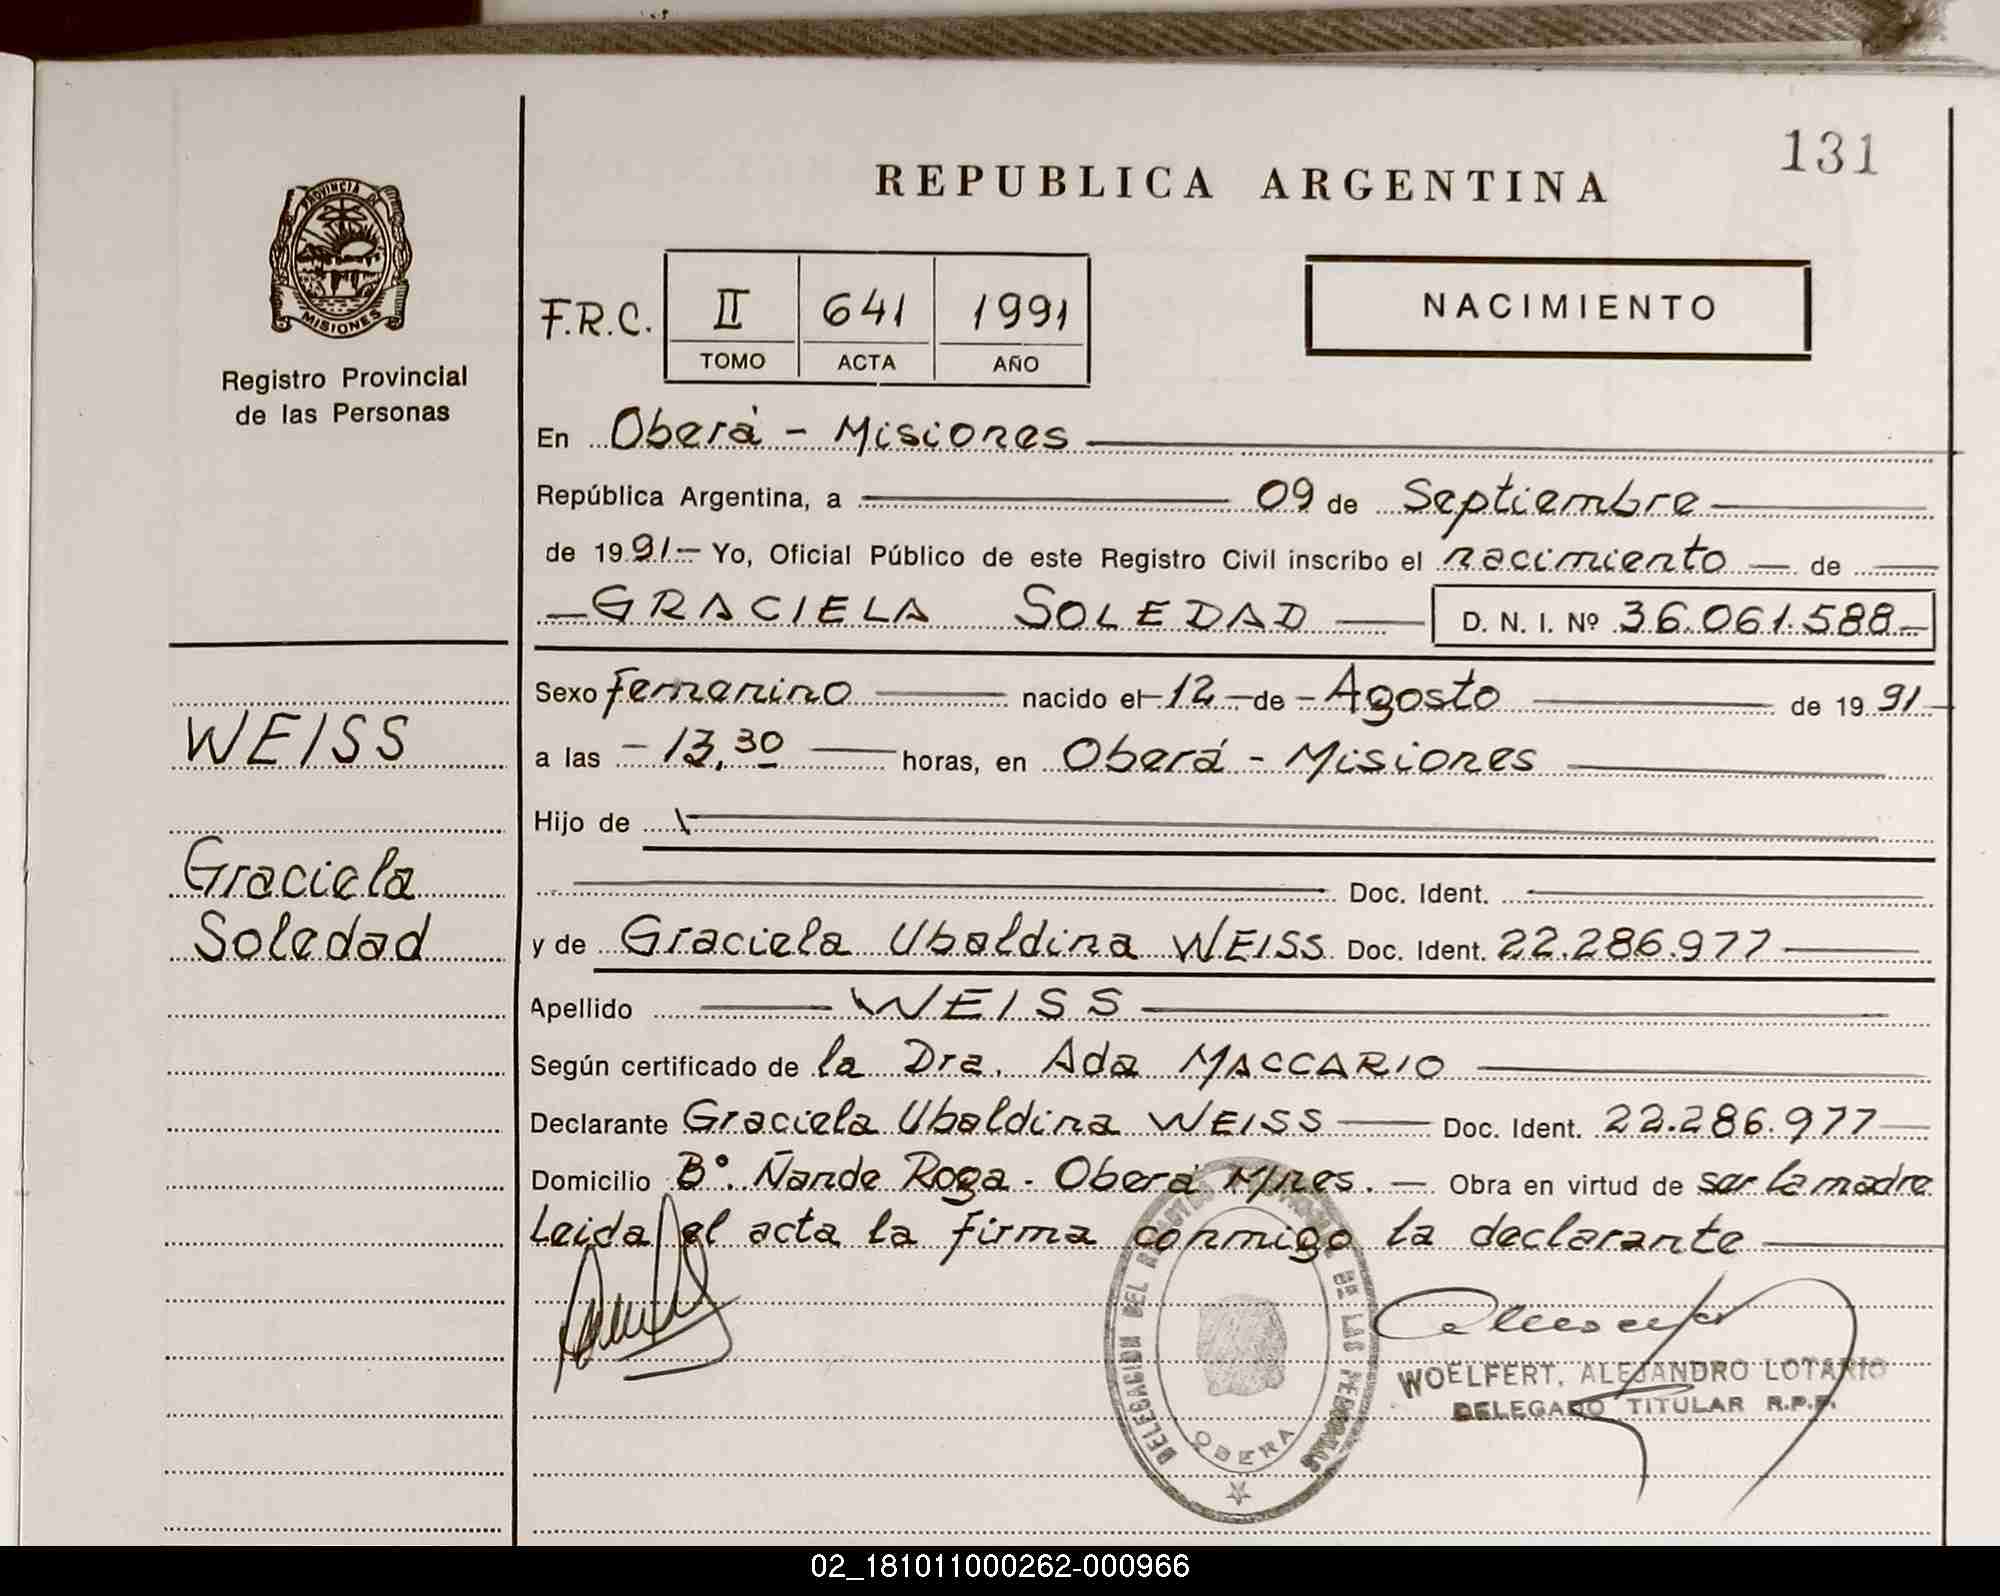 131
REPUBLICA ARGENTINA
PROVINCIA DE
MISIONES
Registro Provincial
de las Personas
F.R.C. II 641 1991
TOMO ACTA AÑO
NACIMIENTO
En Oberá - Misiones
República Argentina, a 09 de Septiembre
de 1991.- Yo, Oficial Público de este Registro Civil inscribo el nacimiento de
GRACIELA SOLEDAD D. N. I. Nº 36.061.588-
Sexo femenino nacido el 12 de Agosto de 1991
WEISS
a las 13,30 horas, en Oberá - Misiones
Hijo de
Doc. Ident.
Graciela
Soledad
y de Graciela Ubaldina WEISS Doc. Ident. 22.286.977
Apellido WEISS
Según certificado de la Dra. Ada MACCARIO
Declarante Graciela Ubaldina WEISS Doc. Ident. 22.286.977
Domicilio Bº. Ñande Roga - Oberá Mnes. - Obra en virtud de ser la madre
Leida el acta la firma conmigo la declarante
DELEGACION DEL REGISTRO DE LAS PERSONAS
OBERA
WOELFERT, ALEJANDRO LOTARIO
DELEGADO TITULAR R.P.P.
02_181011000262-000966